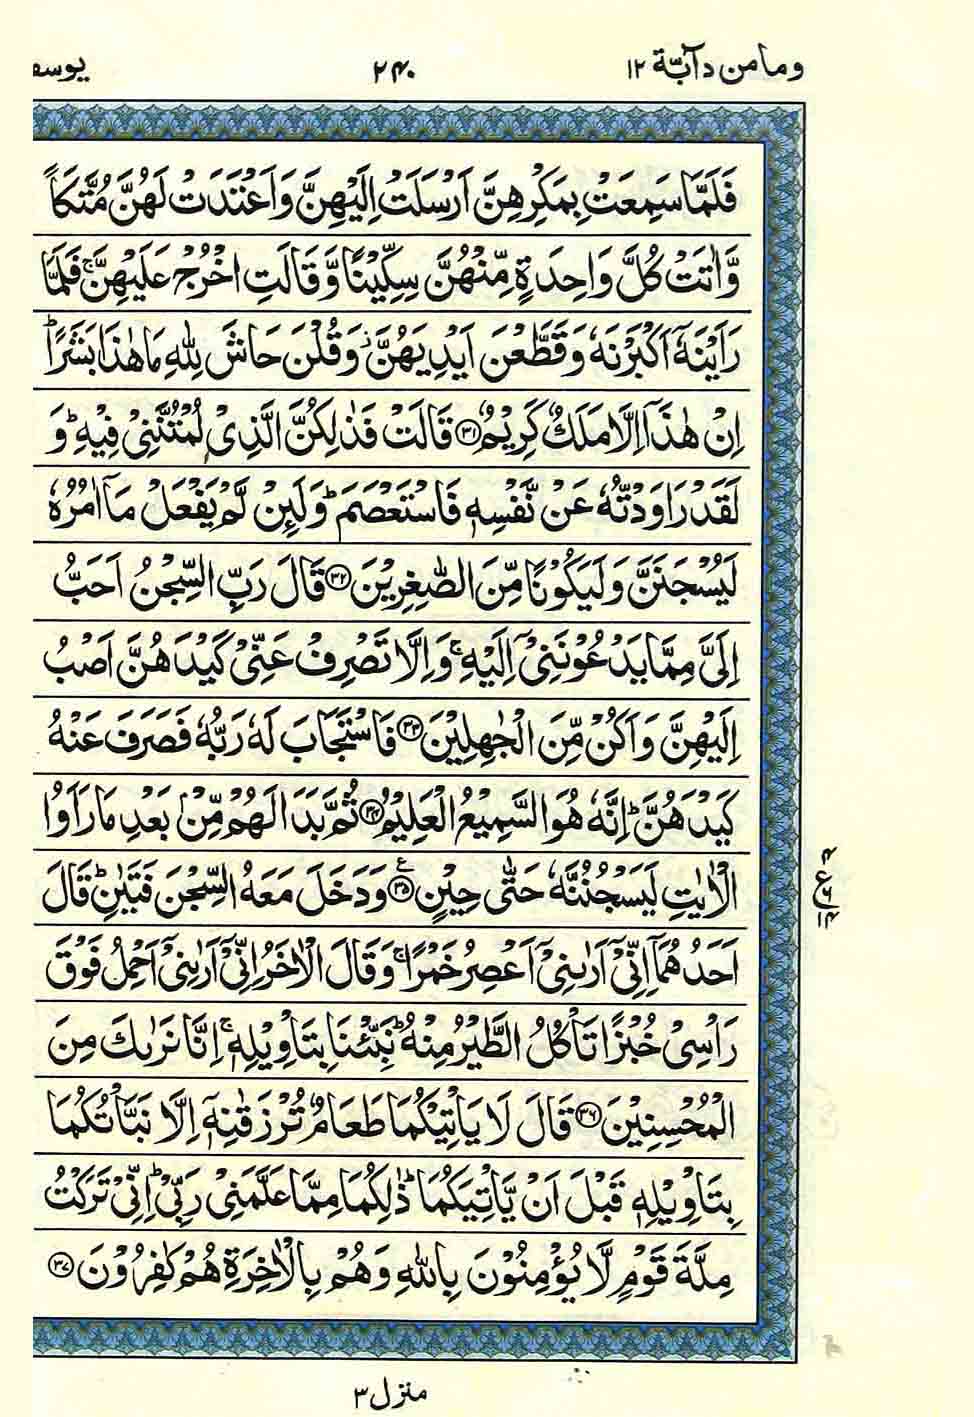 وما من دآبّة ١٢
٢٤٠
يوسف
فَلَمَّا سَمِعَتْ بِمَكْرِهِنَّ اَرْسَلَتْ اِلَيْهِنَّ وَاَعْتَدَتْ لَهُنَّ مُتَّكَاً
وَّاٰتَتْ كُلَّ وَاحِدَةٍ مِّنْهُنَّ سِكِّيْنًا وَّقَالَتِ اخْرُجْ عَلَيْهِنَّ ۚ فَلَمَّا
رَاَيْنَهٗۤ اَكْبَرْنَهٗ وَقَطَّعْنَ اَيْدِيَهُنَّ ؗ وَقُلْنَ حَاشَ لِلّٰهِ مَا هٰذَا بَشَرًا ؕ
اِنْ هٰذَاۤ اِلَّا مَلَكٌ كَرِيْمٌ ۝٣١ قَالَتْ فَذٰلِكُنَّ الَّذِيْ لُمْتُنَّنِيْ فِيْهِ ؕ وَ
لَقَدْ رَاوَدْتُّهٗ عَنْ نَّفْسِهٖ فَاسْتَعْصَمَ ؕ وَلَئِنْ لَّمْ يَفْعَلْ مَاۤ اٰمُرُهٗ
لَيُسْجَنَنَّ وَلَيَكُوْنًا مِّنَ الصّٰغِرِيْنَ ۝٣٢ قَالَ رَبِّ السِّجْنُ اَحَبُّ
اِلَيَّ مِمَّا يَدْعُوْنَنِيْۤ اِلَيْهِ ۚ وَاِلَّا تَصْرِفْ عَنِّيْ كَيْدَهُنَّ اَصْبُ
اِلَيْهِنَّ وَاَكُنْ مِّنَ الْجٰهِلِيْنَ ۝٣٣ فَاسْتَجَابَ لَهٗ رَبُّهٗ فَصَرَفَ عَنْهُ
كَيْدَهُنَّ ؕ اِنَّهٗ هُوَ السَّمِيْعُ الْعَلِيْمُ ۝٣٤ ثُمَّ بَدَا لَهُمْ مِّنْۢ بَعْدِ مَا رَاَوُا
الْاٰيٰتِ لَيَسْجُنُنَّهٗ حَتّٰى حِيْنٍ ۝٣٥ ع وَدَخَلَ مَعَهُ السِّجْنَ فَتَيٰنِ ؕ قَالَ
اَحَدُهُمَاۤ اِنِّيْۤ اَرٰىنِيْۤ اَعْصِرُ خَمْرًا ۚ وَقَالَ الْاٰخَرُ اِنِّيْۤ اَرٰىنِيْۤ اَحْمِلُ فَوْقَ
رَاْسِيْ خُبْزًا تَاْكُلُ الطَّيْرُ مِنْهُ ؕ نَبِّئْنَا بِتَاْوِيْلِهٖ ۚ اِنَّا نَرٰىكَ مِنَ
الْمُحْسِنِيْنَ ۝٣٦ قَالَ لَا يَاْتِيْكُمَا طَعَامٌ تُرْزَقٰنِهٖۤ اِلَّا نَبَّاْتُكُمَا
بِتَاْوِيْلِهٖ قَبْلَ اَنْ يَّاْتِيَكُمَا ؕ ذٰلِكُمَا مِمَّا عَلَّمَنِيْ رَبِّيْ ؕ اِنِّيْ تَرَكْتُ
مِلَّةَ قَوْمٍ لَّا يُؤْمِنُوْنَ بِاللّٰهِ وَهُمْ بِالْاٰخِرَةِ هُمْ كٰفِرُوْنَ ۝٣٧
منزل ٣